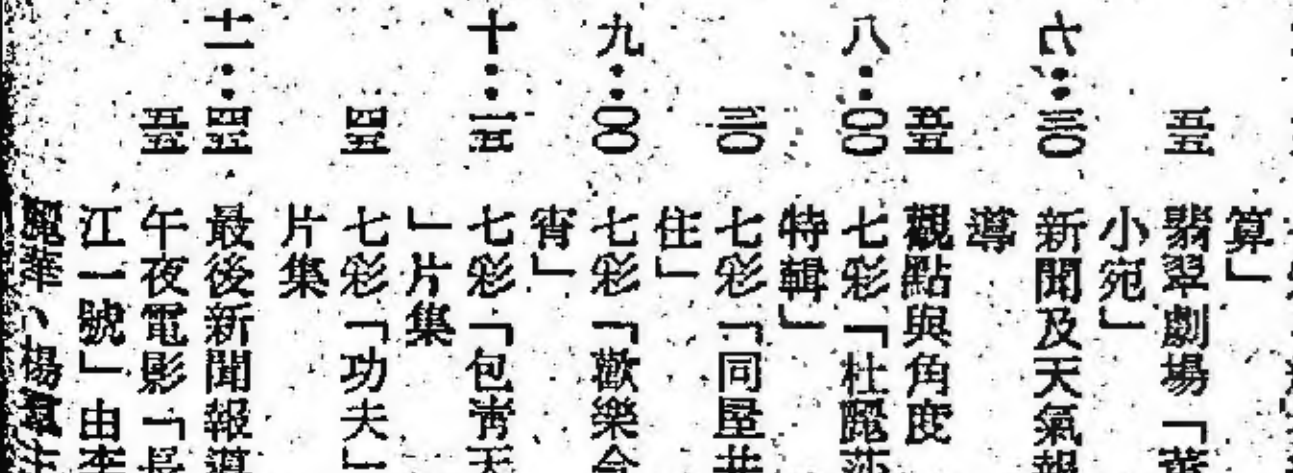 算」
五五 翡翠劇場「董
小宛」
六：三〇 新聞及天氣報
導
五五 觀點與角度
八：〇〇 七彩「杜麗莎
特輯」
三〇 七彩「同屋共
住」
九：〇〇 七彩「歡樂今
宵」
十：一五 七彩「包青天
」片集
四五 七彩「功夫」
片集
十一：四五 最後新聞報導
五五 午夜電影「長
江一號」由李
麗華、楊羣主